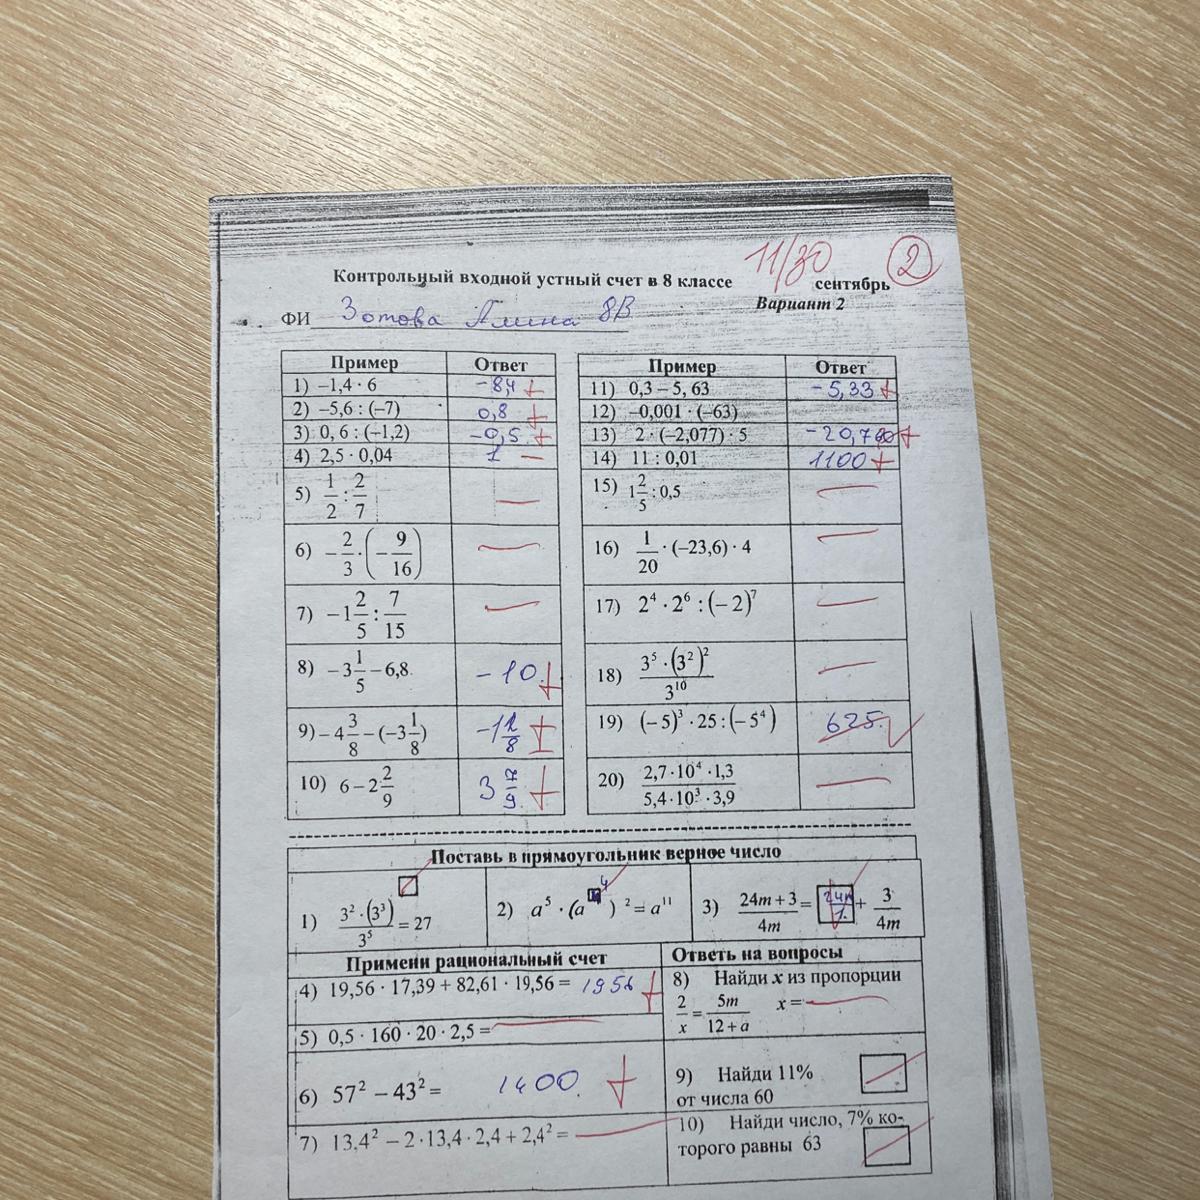 11/30
2
Контрольный входной устный счет в 8 классе сентябрь
Вариант 2
ФИ Зотова Алина 8В
Пример Ответ
1) –1,4 · 6 -8,4 +
2) –5,6 : (–7) 0,8 +
3) 0, 6 : (–1,2) -0,5 +
4) 2,5 · 0,04 1 —
5) 1/2 : 2/7 —
6) –2/3 · (–9/16) —
7) –1 2/5 : 7/15 —
8) –3 1/5 – 6,8 -10 +
9) –4 3/8 – (–3 1/8) +
10) 6 – 2 2/9 3 7/9 +
Пример Ответ
11) 0,3 – 5, 63 -5,33 +
12) –0,001 · (–63)
13) 2 · (–2,077) · 5 +
14) 11 : 0,01 1100 +
15) 1 2/5 : 0,5 —
16) 1/20 · (–23,6) · 4 —
17) 2⁴ · 2⁶ : (– 2)⁷ —
18) 3⁵ · (3²)² / 3¹⁰ —
19) (– 5)³ · 25 : (– 5⁴) 625
20) 2,7 · 10⁴ · 1,3 / 5,4 · 10³ · 3,9 —
Поставь в прямоугольник верное число
1) 3² · (3³) / 3⁵ = 27
2) a⁵ · (a ) ² = a¹¹
3) 24m + 3 / 4m = + 3 / 4m
Примени рациональный счет
4) 19,56 · 17,39 + 82,61 · 19,56 = 1956 +
5) 0,5 · 160 · 20 · 2,5 = —
6) 57² – 43² = 1400 +
7) 13,4² – 2 · 13,4 · 2,4 + 2,4² = —
Ответь на вопросы
8) Найди x из пропорции
2/x = 5m / 12 + a x = —
9) Найди 11%
от числа 60
10) Найди число, 7% ко-
торого равны 63